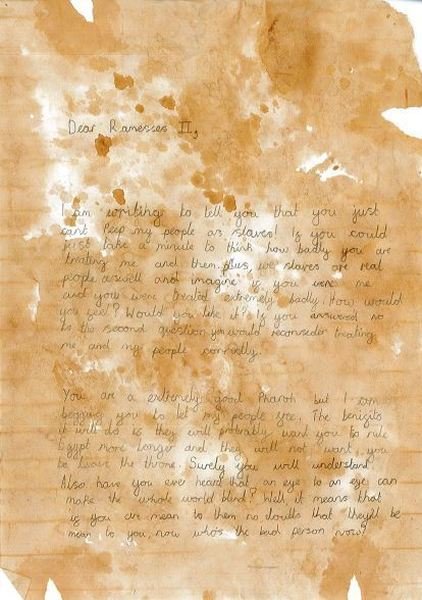 Dear Ramesses II,
I am writing to tell you that you just
cant keep my people as slaves! If you could
just take a minute to think how badly you are
treating me and them plus, we slaves are real
people aswell and imagine if you were me
and you were treated extremely badly. How would
you feel? Would you like it? If you answered no
to the second question you would reconsider treating
me and my people correctly.
You are a extremely good Pharoh but I am
begging you to let my people free. The benifits
it will do is they will probably want you to rule
Egypt more longer and they will not want you
to leave the throne. Surely you will understand
Also have you ever heard that an eye to an eye can
make the whole world blind? Well it means that
if you are mean to them no doubts that they'd be
mean to you, now who's the bad person now?